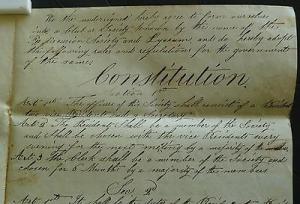 We the undersigned hereby agree to form ourselves
into a Club or Society known by the name of the
Society and Lyceum, and do hereby adopt
the following rules and regulations for the government
of the same.
Constitution.
Section 1st
Art. 1st. The officers of the Society shall consist of a President
Art. 2. The President shall be a member of the Society
and shall be chosen with the vice Presidents every
evening for the next meeting by a majority of the members
Art. 3 The Clerk shall be a member of the Society and
chosen for 3 Months by a majority of the members
Sec. 2d
Art. 1st. It shall be the duty of the